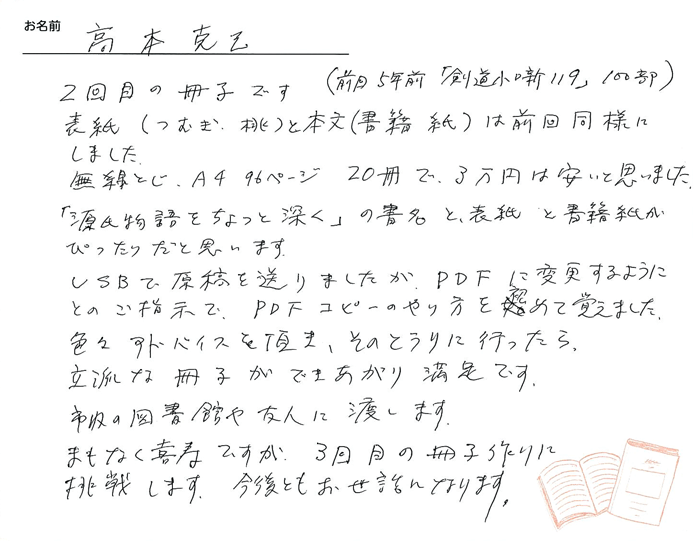 お名前
高本克己
2回目の冊子です (前回 5年前「剣道小噺119」100部)
表紙(つむぎ.桃)と本文(書籍 紙)は前回同様に
しました.
無線とじ、A4 96ページ 20冊で、3万円は安いと思いました.
「源氏物語をちょっと深く」の書名と、表紙と書籍紙が
ぴったりだと思います.
USBで原稿を送りましたが、PDFに変更するように
とのご指示で、PDFコピーのやり方を初めて覚えました.
色々アドバイスを頂き、そのとうりに行ったら、
立派な冊子ができあがり満足です.
市役の図書館や友人に渡します.
まもなく喜寿ですが、3回目の冊子作りに
挑戦します. 今後ともお世話になります。